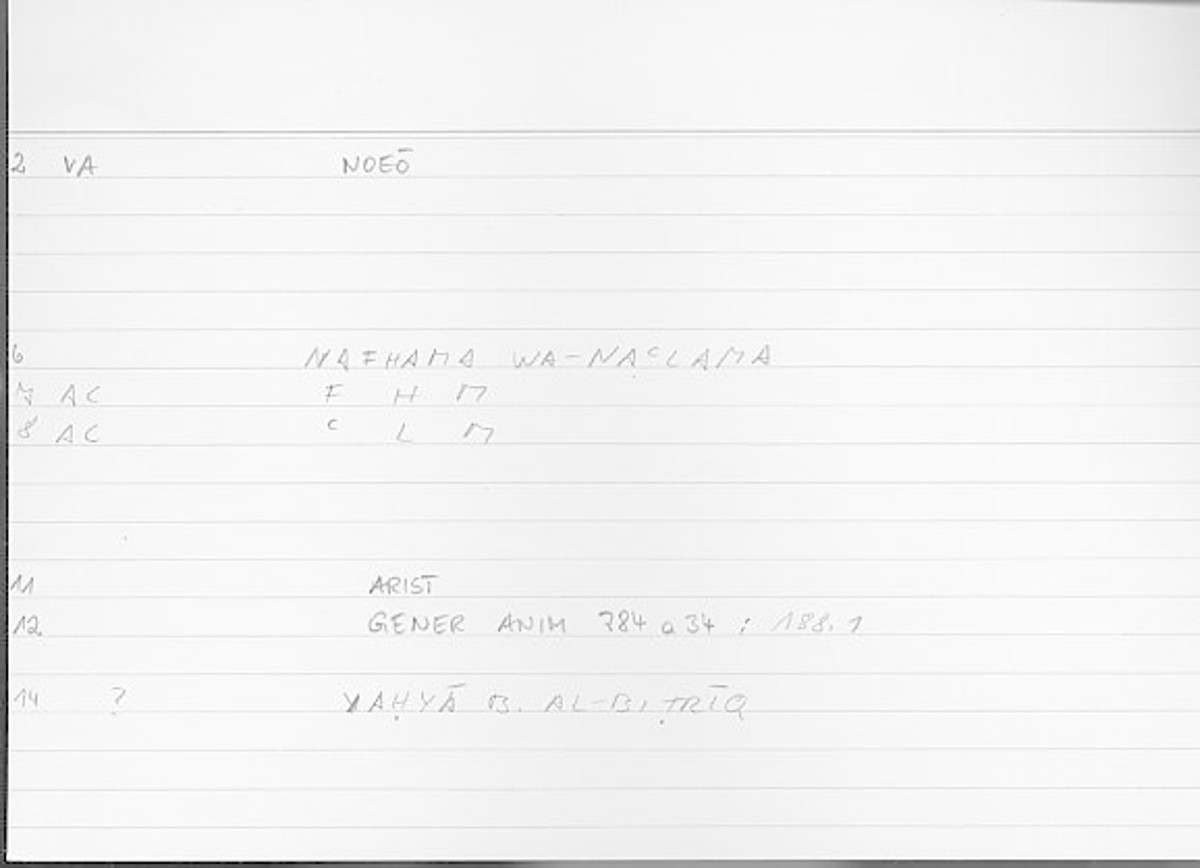 2 VA NOEŌ
6 NAFHAMA WA-NAᶜLAMA
7 AC F H M
8 AC ᶜ L M
11 ARIST
12 GENER ANIM 784 a 34 ; 188.1
14 ? YAḤYĀ B. AL-BIṬRĪQ